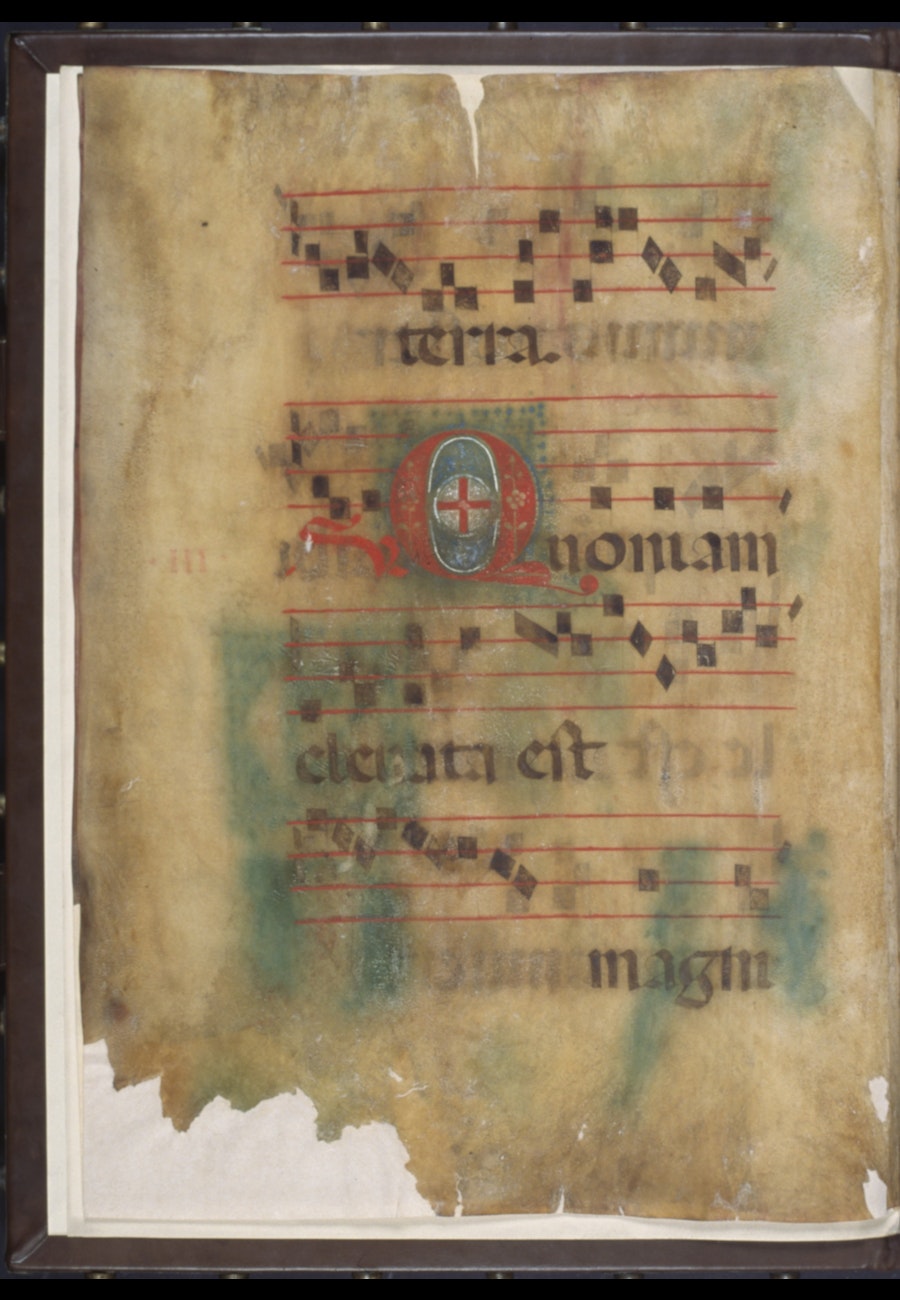 terra.
Quoniam
elevata est
magni